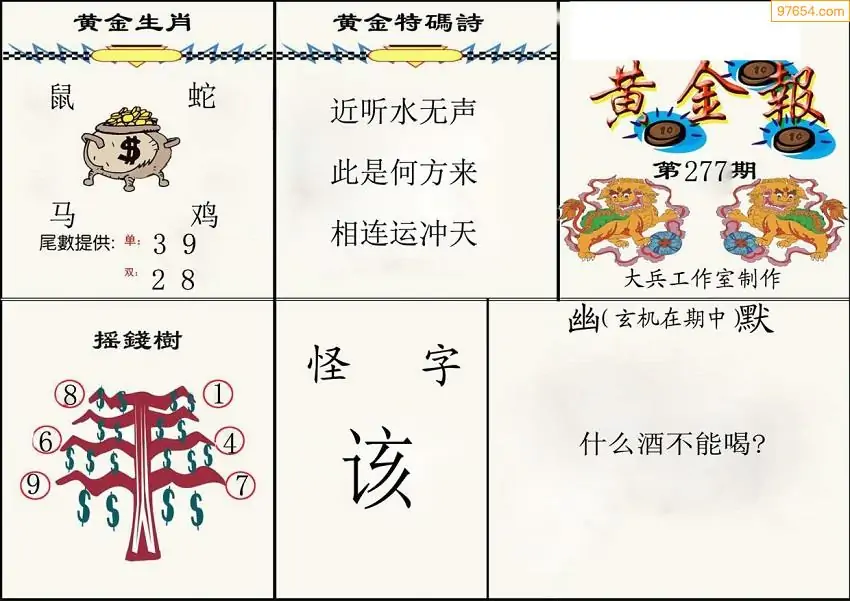 97654.com
黄金生肖
鼠 蛇
$
马 鸡
尾數提供: 单: 3 9
双: 2 8
黄金特碼詩
近听水无声
此是何方来
相连运冲天
黄金報
10
10
10
第277期
大兵工作室制作
摇錢樹
8 1
6 4
9 7
$ $ $ $
$ $ $ $
$ $ $ $ $ $
$ $ $ $
怪 字
该
幽(玄机在期中)默
什么酒不能喝?